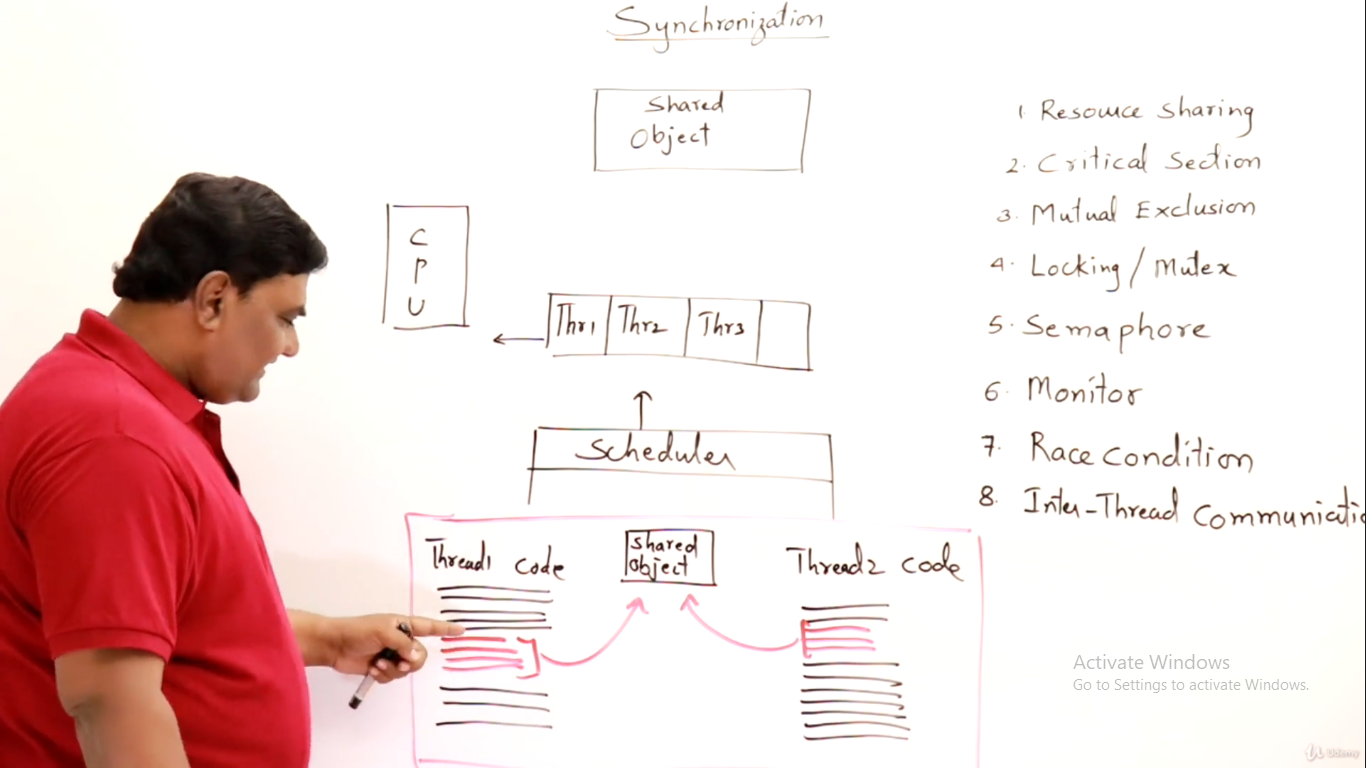 Synchronization
Shared
Object
C
P
U
Thr1 Thr2 Thr3
Scheduler
Thread1 code
Shared
Object
Thread2 code
1 Resource sharing
2. Critical Section
3. Mutual Exclusion
4. Locking / Mutex
5. Semaphore
6. Monitor
7. Race condition
8. Inter-Thread Communicatio
Activate Windows
Go to Settings to activate Windows.
Udemy